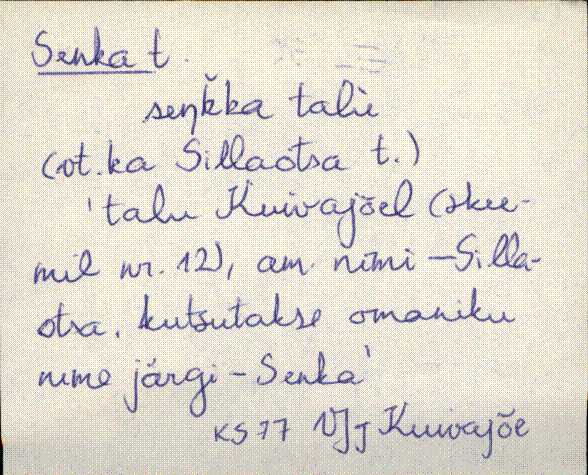 Senka t.
seŋk̆ka talù
(vt. ka Sillaotsa t.)
'talu Kuivajõel (skee-
mil nr. 12), am. nimi – Silla-
otsa, kutsutakse omaniku
nime järgi – Senka'
KS 77 VJg Kuivajõe